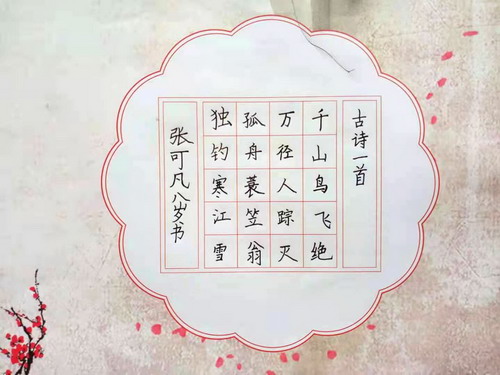 古诗一首
千山鸟飞绝
万径人踪灭
孤舟蓑笠翁
独钓寒江雪
张可凡八岁书